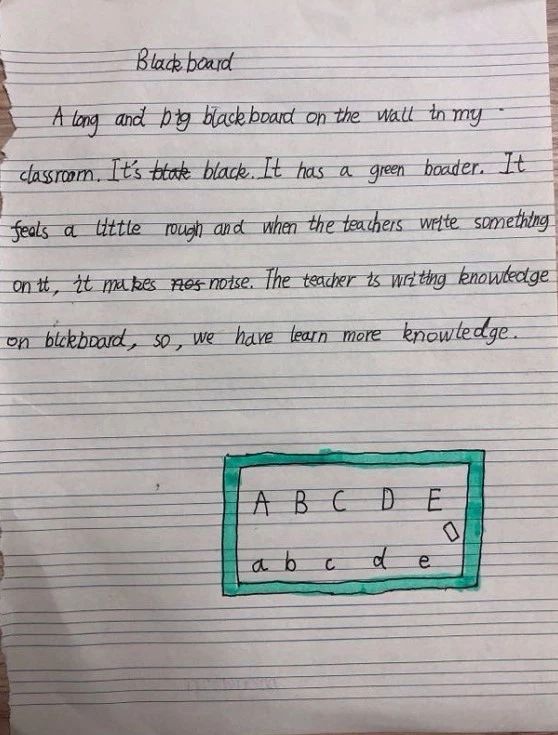 Blackboard
A long and big blackboard on the wall in my
classroom. It's blak black. It has a green boader. It
feels a little rough and when the teachers write something
on it, it makes nos noise. The teacher is writing knowledge
on blckboard, so, we have learn more knowledge.
A B C D E
a b c d e